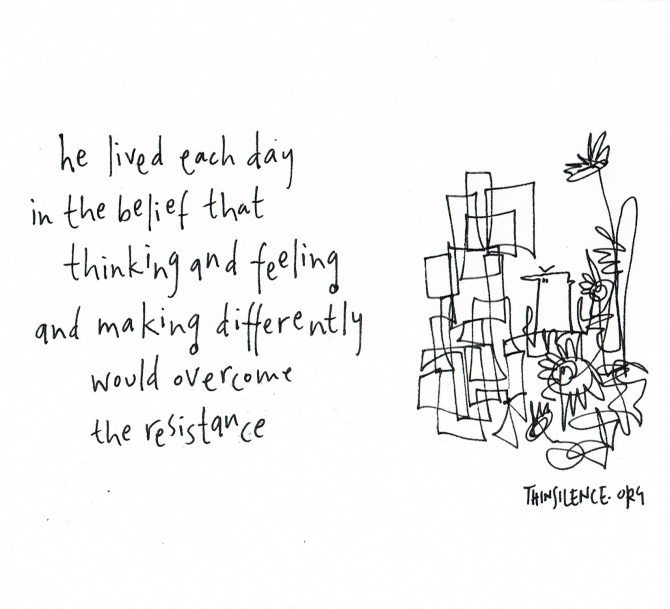 he lived each day
in the belief that
thinking and feeling
and making differently
would overcome
the resistance
THINSILENCE.ORG